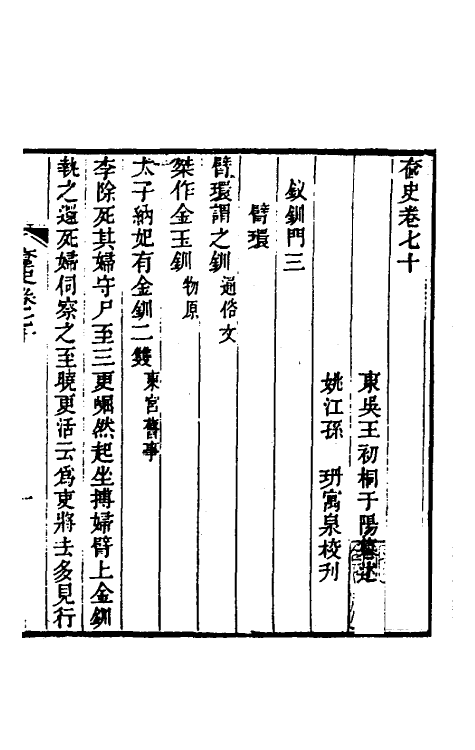 奩史卷七十
東吳王初桐于陽纂述
姚江孫 玬寓泉校刋
釵釧門三
臂環
臂環謂之釧通俗文
桀作金玉釧物原
太子納妃有金釧二雙東宮舊事
李除死其婦守尸至三更崛然起坐搏婦臂上金釧
執之還死婦伺察之至曉更活云爲吏將去多見行
奩史卷七十
一